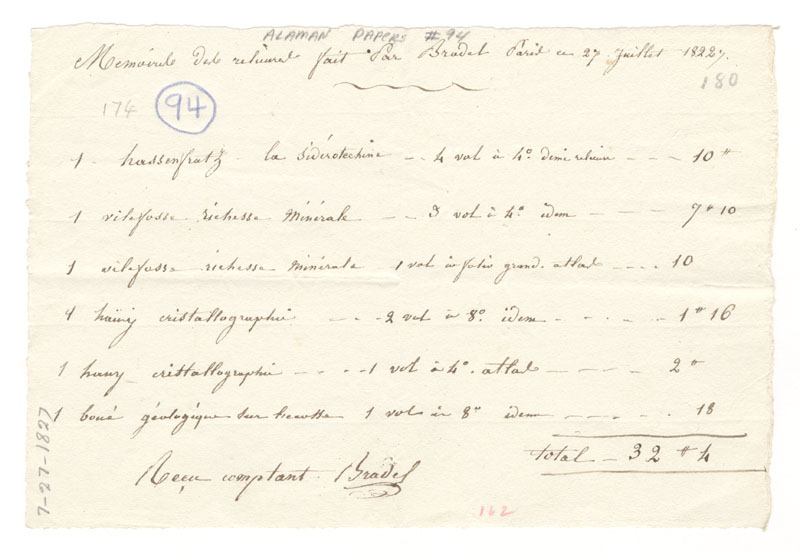 ALAMAN PAPERS #94
Memoire de reliures fait Par Bradel Paris ce 27 Juillet 1822.
180
174 94
1 hassenfratz la Sidérotechnie 4 vol in 4º demi reliure 10 "
1 villefosse richesse Minérale 3 vol in 4º idem 7 " 10
1 villefosse richesse Minérale 1 vol in folio grand atlas 10
1 haüy cristallographie 2 vol in 8º idem 1 " 16
1 hauy cristallographie 1 vol in 4º atlas 2 "
1 boué géologique sur l'ecosse 1 vol in 8º idem 18
total 32 " 4
Reçu comptant Bradel
162
7-27-1827